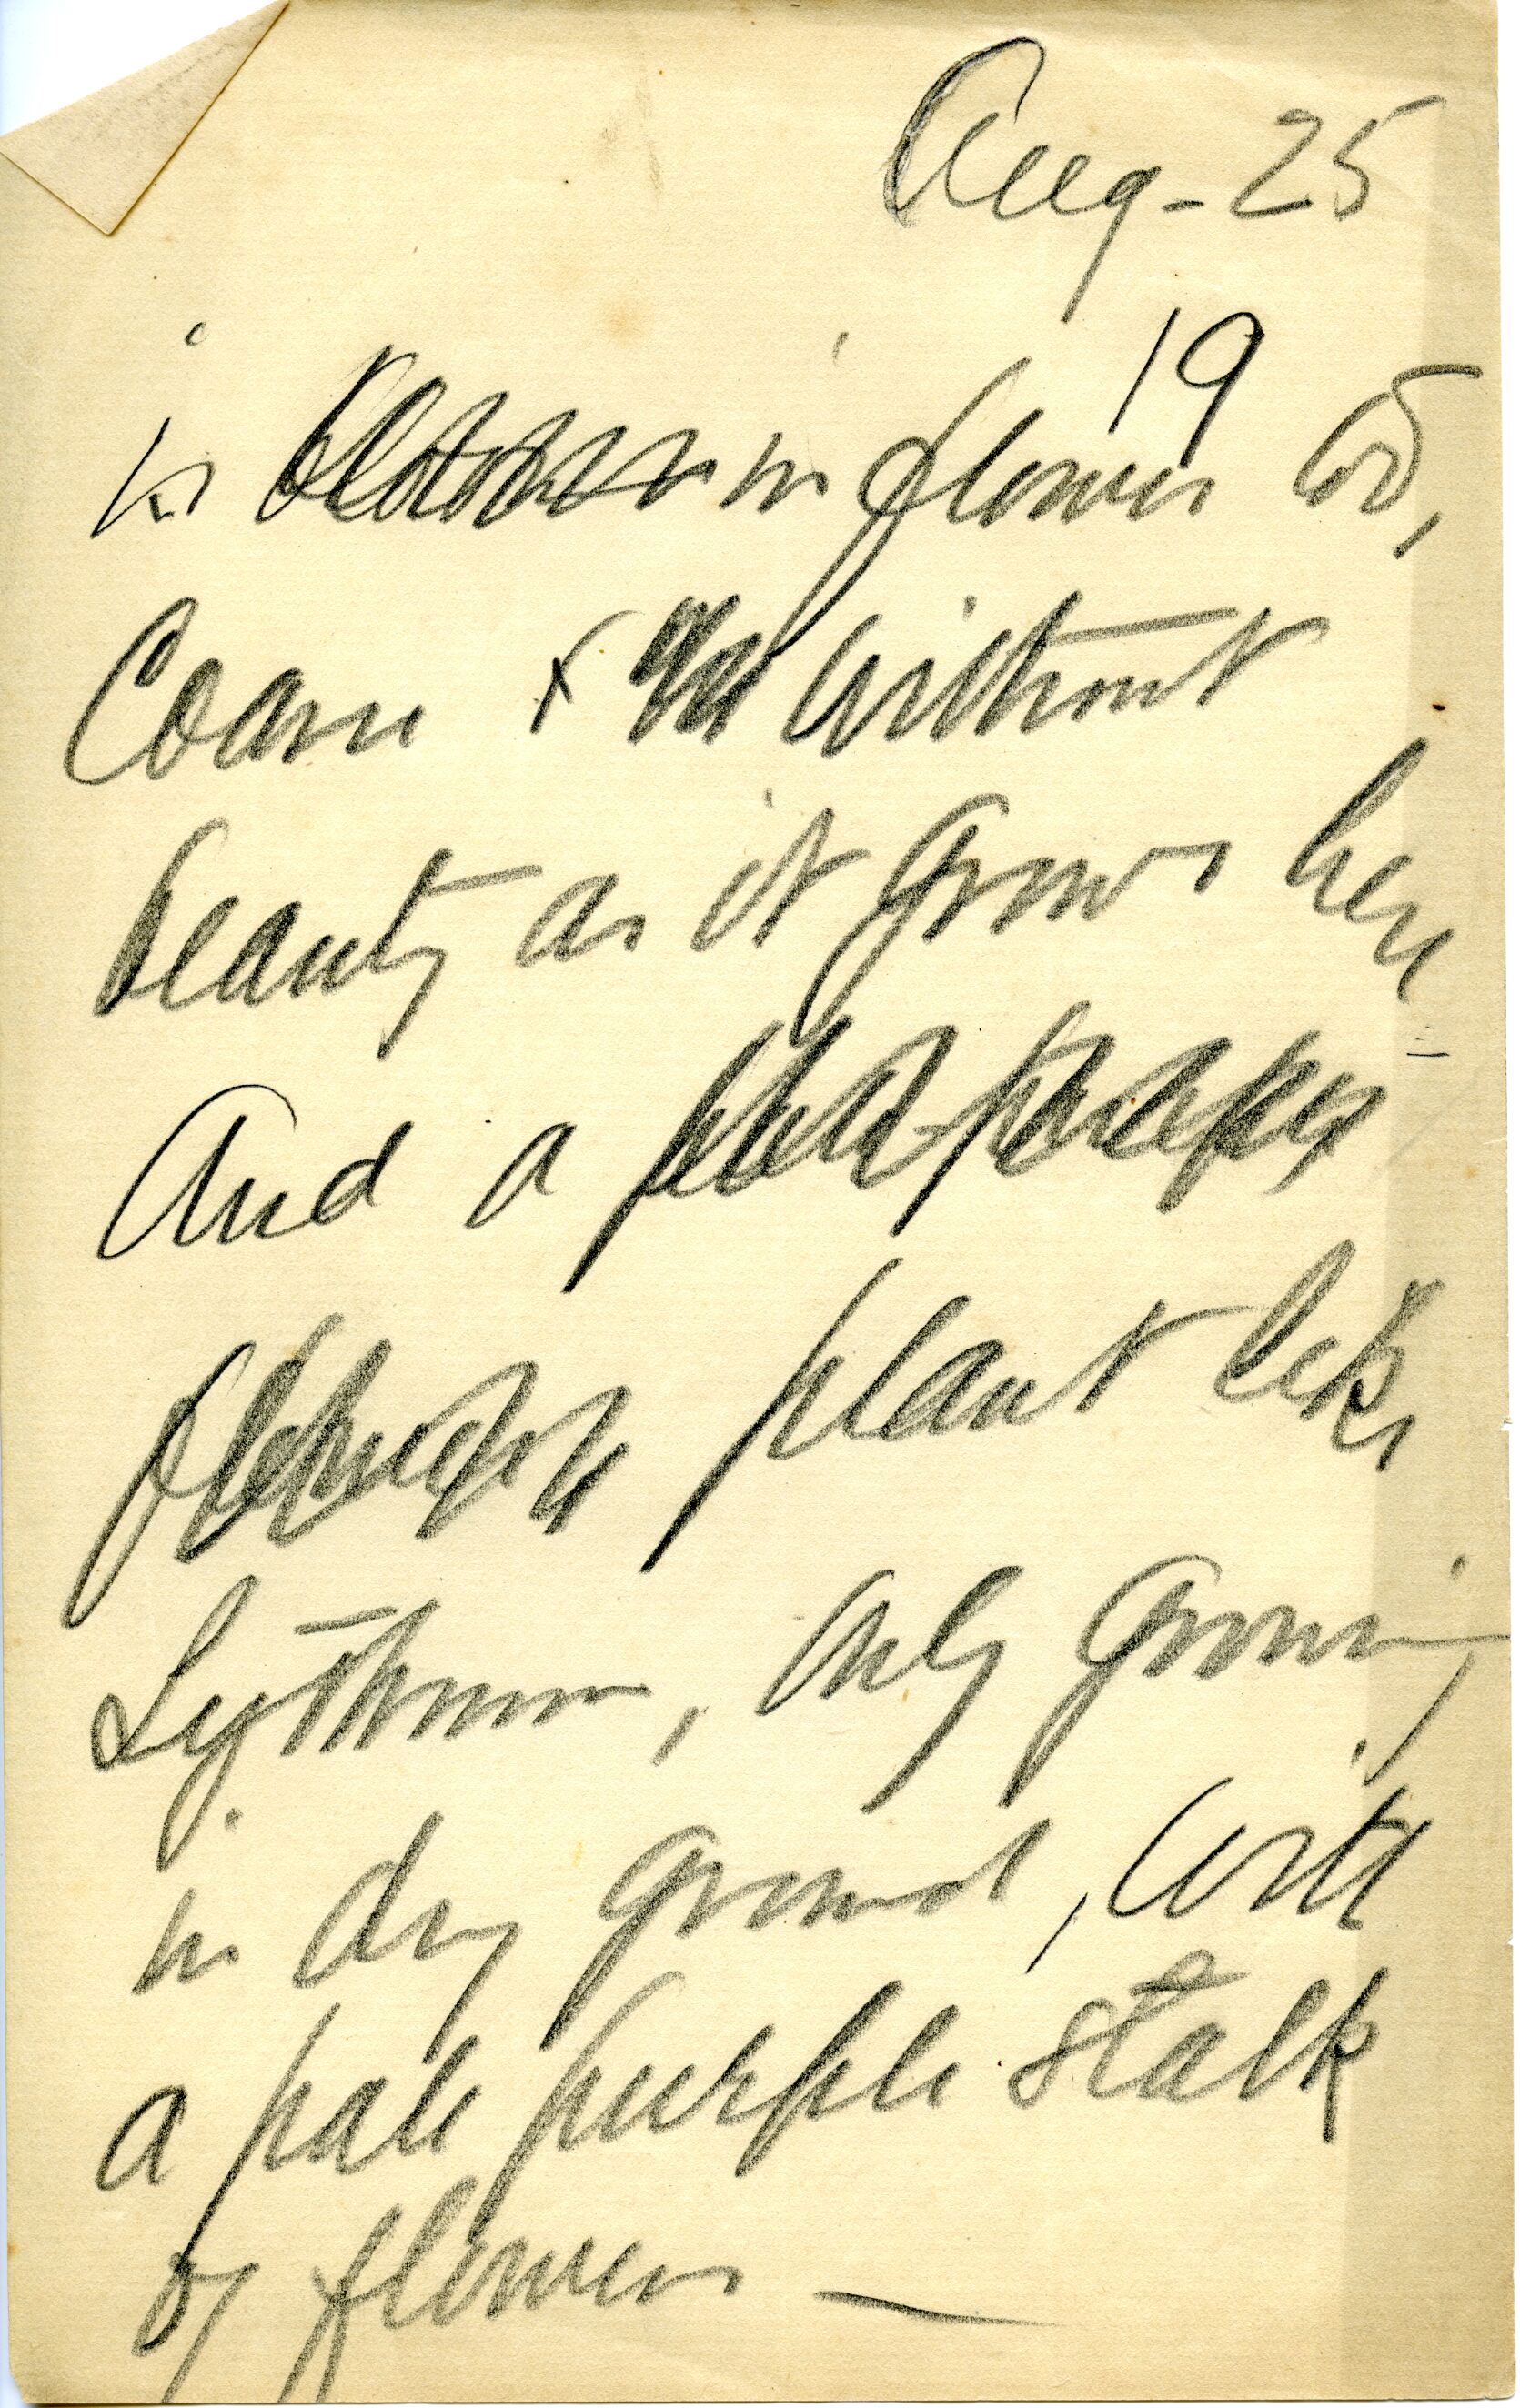 Aug-25
19
is in flower too,
Coarse & without
beauty as it grows here
And a
plant like
Lythrum, only growing
in dry ground, with
a pale purple stalk
of flowers —